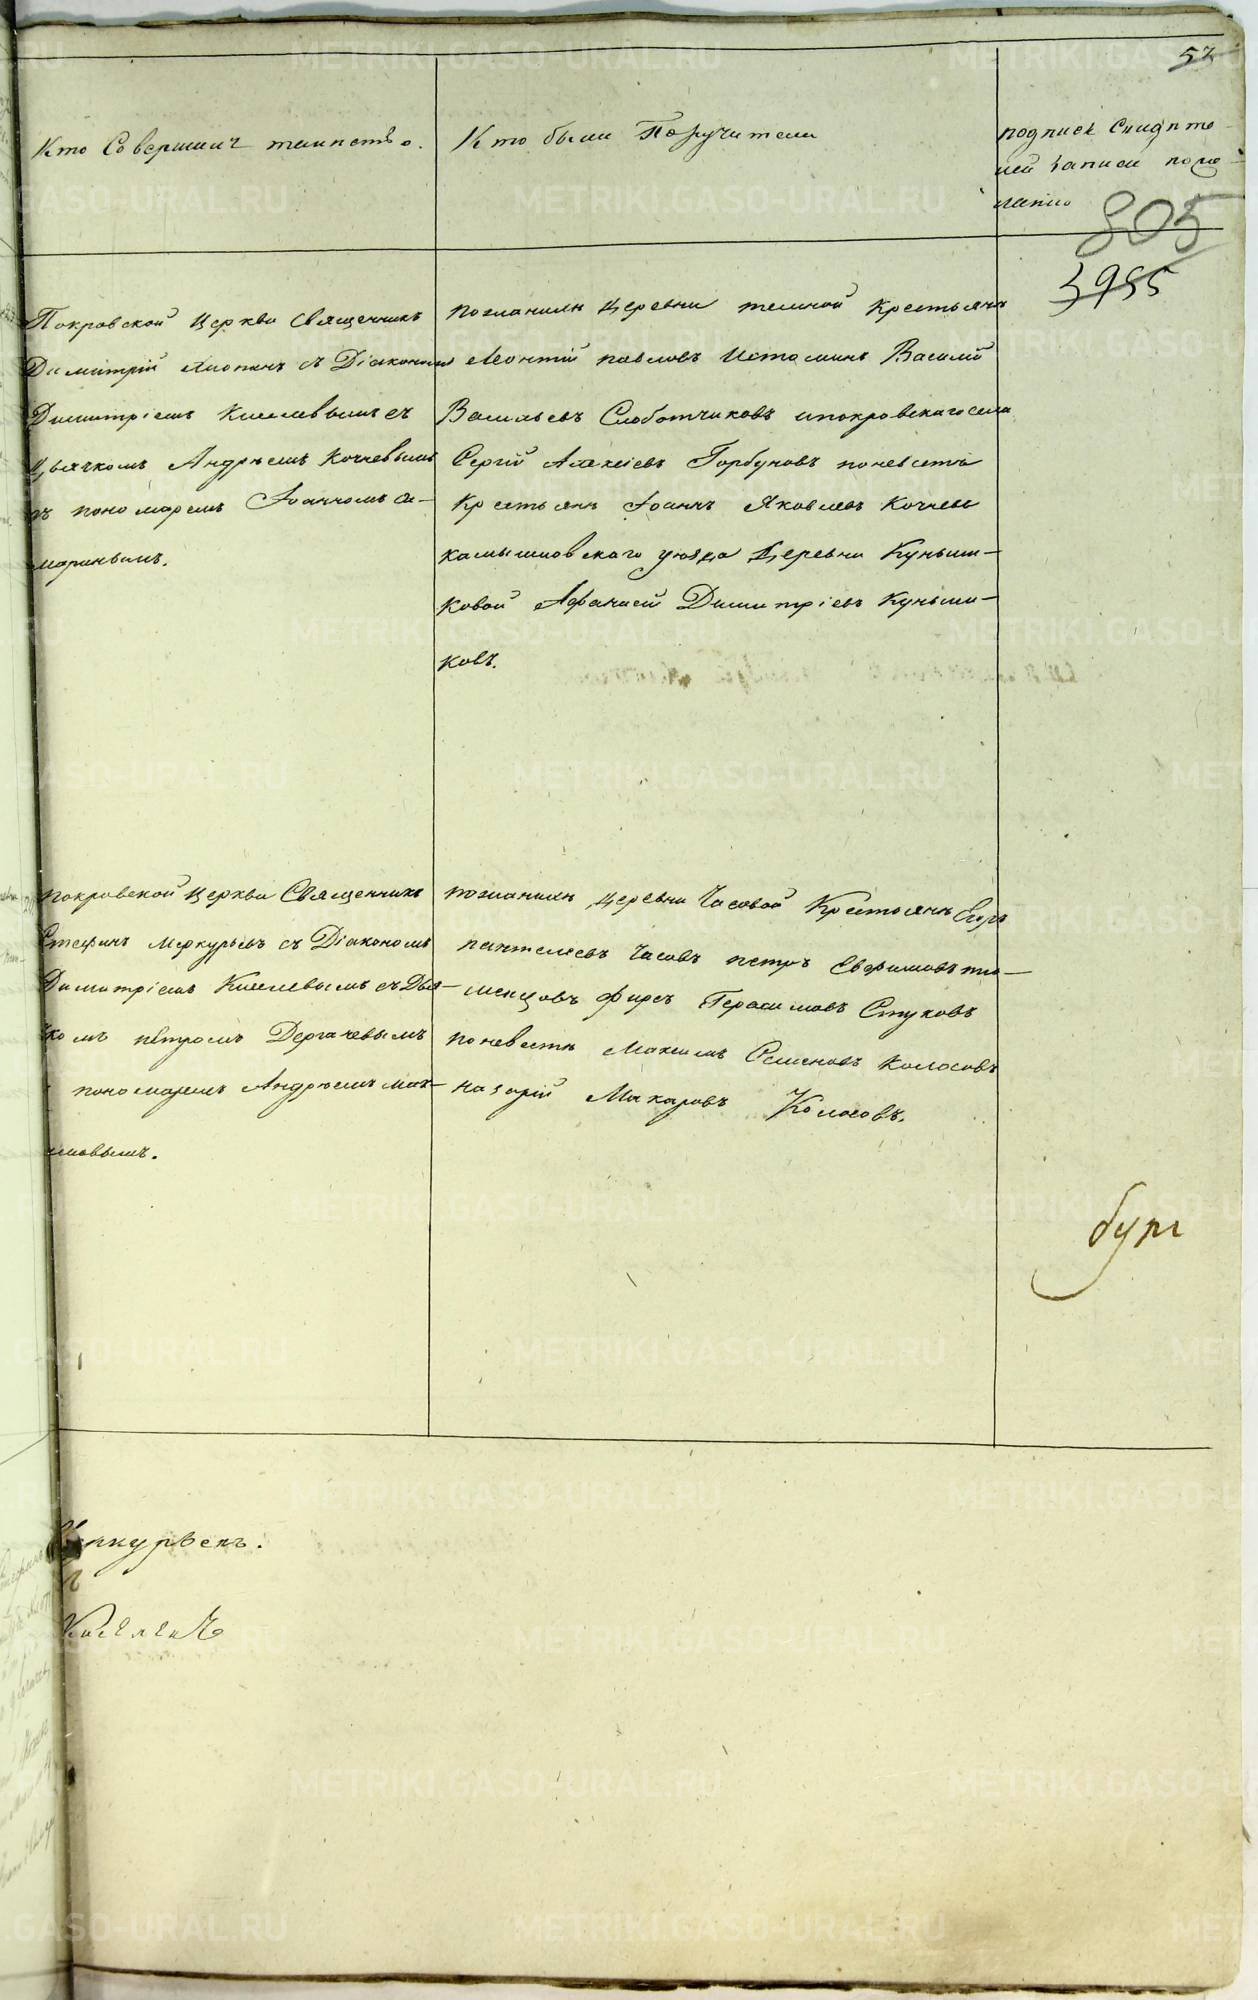 52
Кто Совершил таинство.
Кто были Поручители
подпись свидете
лей записи по же
ланию
805
3955
Покровской Церкви Священникъ
Димитрій с Діакономъ
Димитріемъ Киселевымъ съ
Дьячкомъ Андреемъ Кочневымъ
пономаремъ Іоанномъ
маринымъ.
по женихѣ Деревни темной Крестьянъ
Леонтій павловъ Истоминъ Василій
Васильевъ Слоботчиковъ и покровскаго села
Сергій Алексіевъ Горбуновъ по невестѣ
Крестьянъ Іоаннъ Яковлевъ Кочневъ
камышловскаго уезда Деревни Куньши-
ковой Афанасій Димитріевъ Куньши-
ковъ.
покровской Церкви Священникъ
Стефанъ Меркурьевъ съ Діакономъ
Димитріемъ Киселевымъ съ Дья-
комъ петромъ Дергачевымъ
пономаремъ Андреемъ мак-
симовымъ.
по женихѣ Деревни Часовой Крестьянъ Егоръ
пантелеевъ Часовъ петръ Евфимовъ тю-
менцовъ фирсъ Герасимовъ Стуковъ
по невестѣ Максимъ Семеновъ Колосовъ
назарій Макаровъ Колосовъ.
Меркурьевъ.
Киселевъ